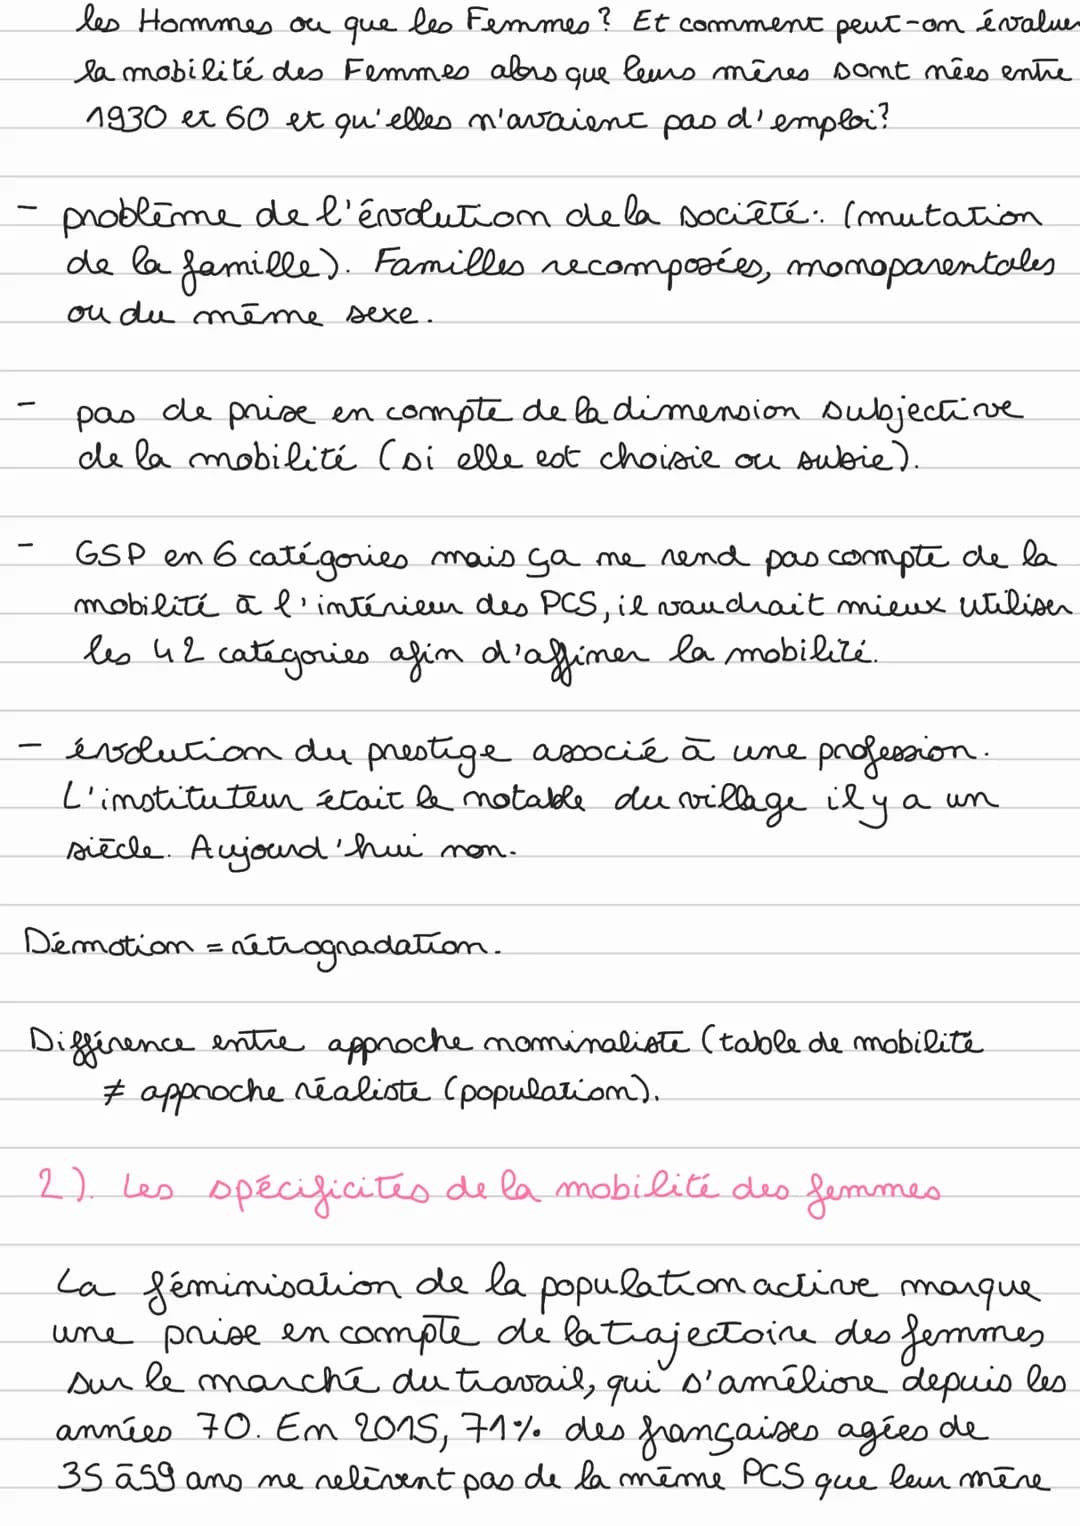 les Hommes ou que les Femmes ? Et comment peut-on évaluer
la mobilité des Femmes alors que leurs mères sont nées entre
1930 et 60 et qu'elles n'avaient pas d'emploi ?
- problème de l'évolution de la société : (mutation
de la famille). Familles recomposées, monoparentales
ou du même sexe.
- pas de prise en compte de la dimension subjective
de la mobilité (si elle est choisie ou subie).
- GSP en 6 catégories mais ça ne rend pas compte de la
mobilité à l'intérieur des PCS, il vaudrait mieux utiliser
les 42 catégories afin d'affiner la mobilité.
- évolution du prestige associé à une profession.
L'instituteur était le notable du village il y a un
siècle. Aujourd'hui non.
Démotion = rétrogradation.
Différence entre approche nominaliste (table de mobilité
≠ approche réaliste (population).
2). Les spécificités de la mobilité des femmes
La féminisation de la population active marque
une prise en compte de la trajectoire des femmes
sur le marché du travail, qui s'améliore depuis les
années 70. En 2015, 71% des françaises agées de
35 à 59 ans ne relèvent pas de la même PCS que leur mère